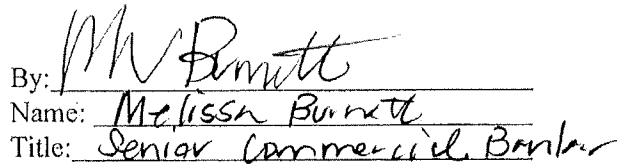 By: MN Burnett
Name: Melissa Burnett
Title: Senior Commercial Banker